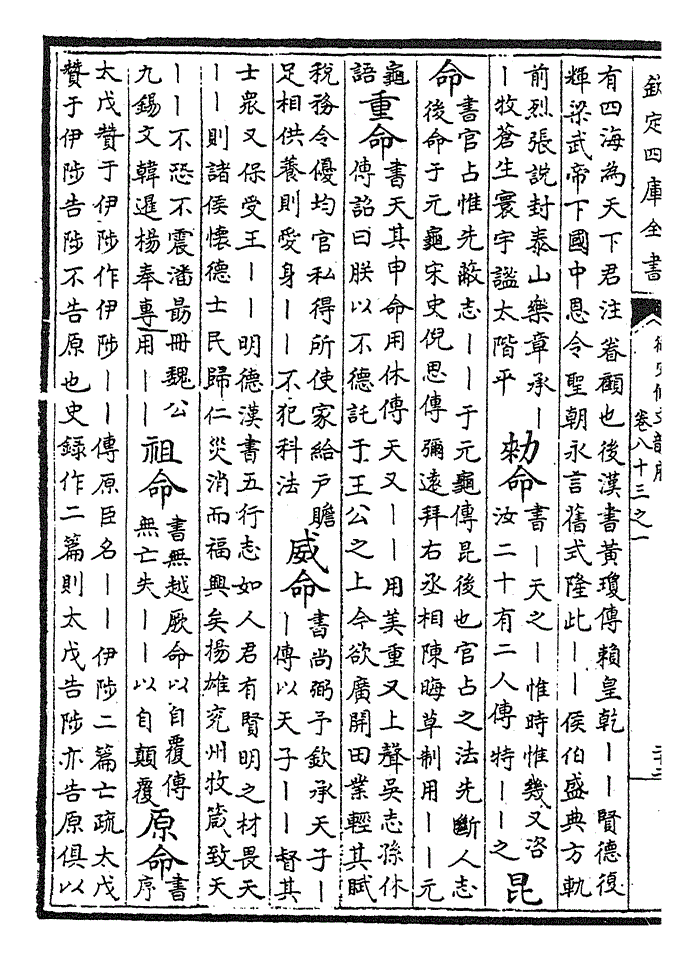 欽定四庫全書
卷八十三之一
有四海為天下君注眷顧也後漢書黃瓊傳賴皇乾丨丨賢德復
輝梁武帝下國中恩令聖朝永言舊式隆此丨丨侯伯盛典方軌
前烈張說封泰山樂章承丨
丨牧蒼生寰宇謐太階平
勅命
書丨天之丨惟時惟幾又咨
汝二十有二人傳特丨丨之
昆
命
書官占惟先蔽志丨丨于元龜傳昆後也官占之法先斷人志
後命于元龜宋史倪思傳彌遠拜右丞相陳晦草制用丨丨元
龜
語
重命
書天其申命用休傳天又丨丨用美重又上聲吳志孫休
傳詔曰朕以不德託于王公之上今欲廣開田業輕其賦
稅務令優均官私得所使家給戶贍
足相供養則愛身丨丨不犯科法
威命
書尚弼予欽承天子丨
丨傳以天子丨丨督其
士衆又保受王丨丨明德漢書五行志如人君有賢明之材畏天
丨丨則諸侯懷德士民歸仁災消而福興矣揚雄兖州牧箴致天
丨丨不恐不震潘勗冊魏公
九錫文韓暹楊奉專用丨丨
祖命
書無越厥命以自覆傳
無亡失丨丨以自顛覆
原命
書
序
太戊贊于伊陟作伊陟丨丨傳原臣名丨丨伊陟二篇亡疏太戊
贊于伊陟告陟不告原也史錄作二篇則太戊告陟亦告原俱以